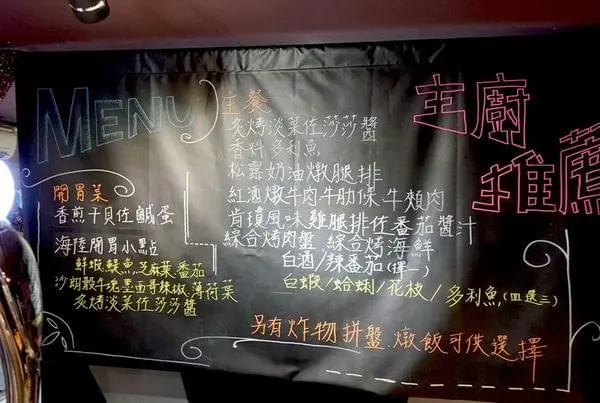 MENU
開胃菜
香煎干貝佐鹹蛋
海陸開胃小點
鮮蝦,鯷魚,芝麻葉,番茄
沙朗骰牛塊,墨西哥辣椒,薄荷葉
炙烤淡菜佐莎莎醬
主餐
炙烤淡菜佐莎莎醬
香料多利魚,
松露奶油燉腿排
紅酒燉牛肉,牛肋條,牛頰肉
肯瓊風味雞腿排佐番茄醬汁
綜合烤肉盤 綜合烤海鮮
白酒/辣番茄(擇一)
白蝦/蛤蜊/花枝/多利魚,(四選三)
另有炸物拼盤、燉飯可供選擇
主廚
推薦